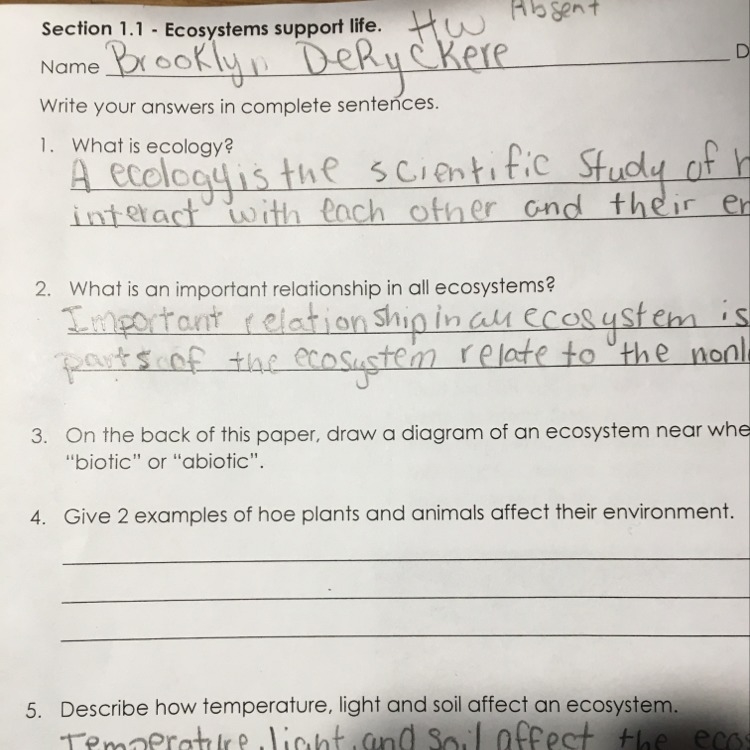 Section 1.1 - Ecosystems support life. HW Absent
Name Brooklyn DeRyckere D
Write your answers in complete sentences.
1. What is ecology?
A ecology is the scientific study of h
interact with each other and their en
2. What is an important relationship in all ecosystems?
Important relationship in all ecosystem is
parts of the ecosystem relate to the nonl
3. On the back of this paper, draw a diagram of an ecosystem near whe
"biotic" or "abiotic".
4. Give 2 examples of hoe plants and animals affect their environment.
5. Describe how temperature, light and soil affect an ecosystem.
Temperature, light, and soil affect the ecos